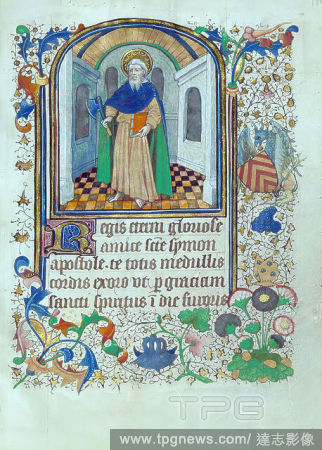 Regis eterni gloriose
amice sc̄te symon
apostole. te totis medullis
cordis exoro ut per graciam
sancti spiritus ī die furoris
TPG
www.tpgnews.com / 達志影像